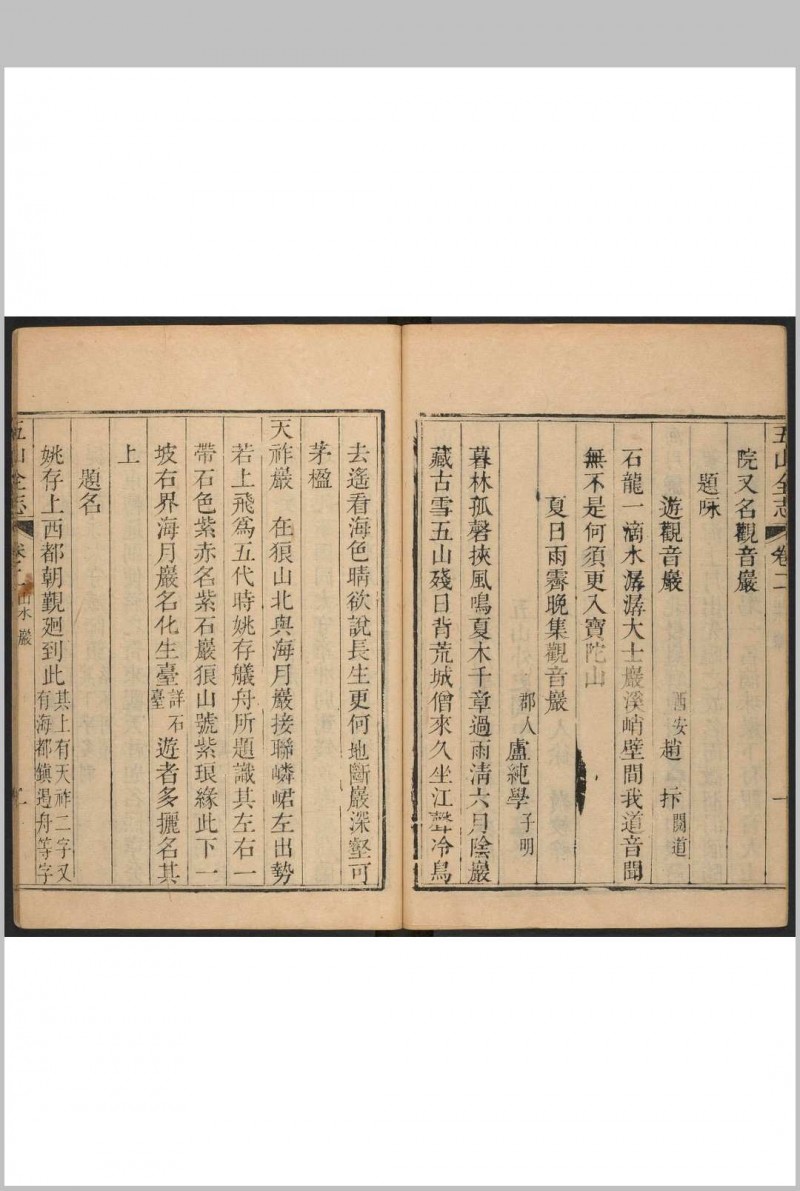 五山全志 卷二 一
院又名觀音巖
題咏
遊觀音巖 西安趙抃閱道
石龍一滴水潺潺大士巖溪峭壁間我道音聞
無不是何須更入寶陀山
夏日雨霽晚集觀音巖
郡人盧純學子明
暮林孤磬挾風鳴夏木千章過雨清六月陰巖
藏古雪五山殘日背荒城僧來久坐江聲冷鳥
去遙看海色晴欲說長生更何地斷巖深壑可
茅楹
天祚巖 在狼山北與海月巖接聯嶙峋左出勢
若上飛爲五代時姚存艤舟所題識其左右一
帶石色紫赤名紫石巖狼山號紫琅緣此下一
坡右界海月巖名化生臺詳石臺遊者多攦名其
上
題名
姚存上西都朝覲廻到此其上有天祚二字又有海都鎮遏舟等字
五山全志 卷二 山水 巖